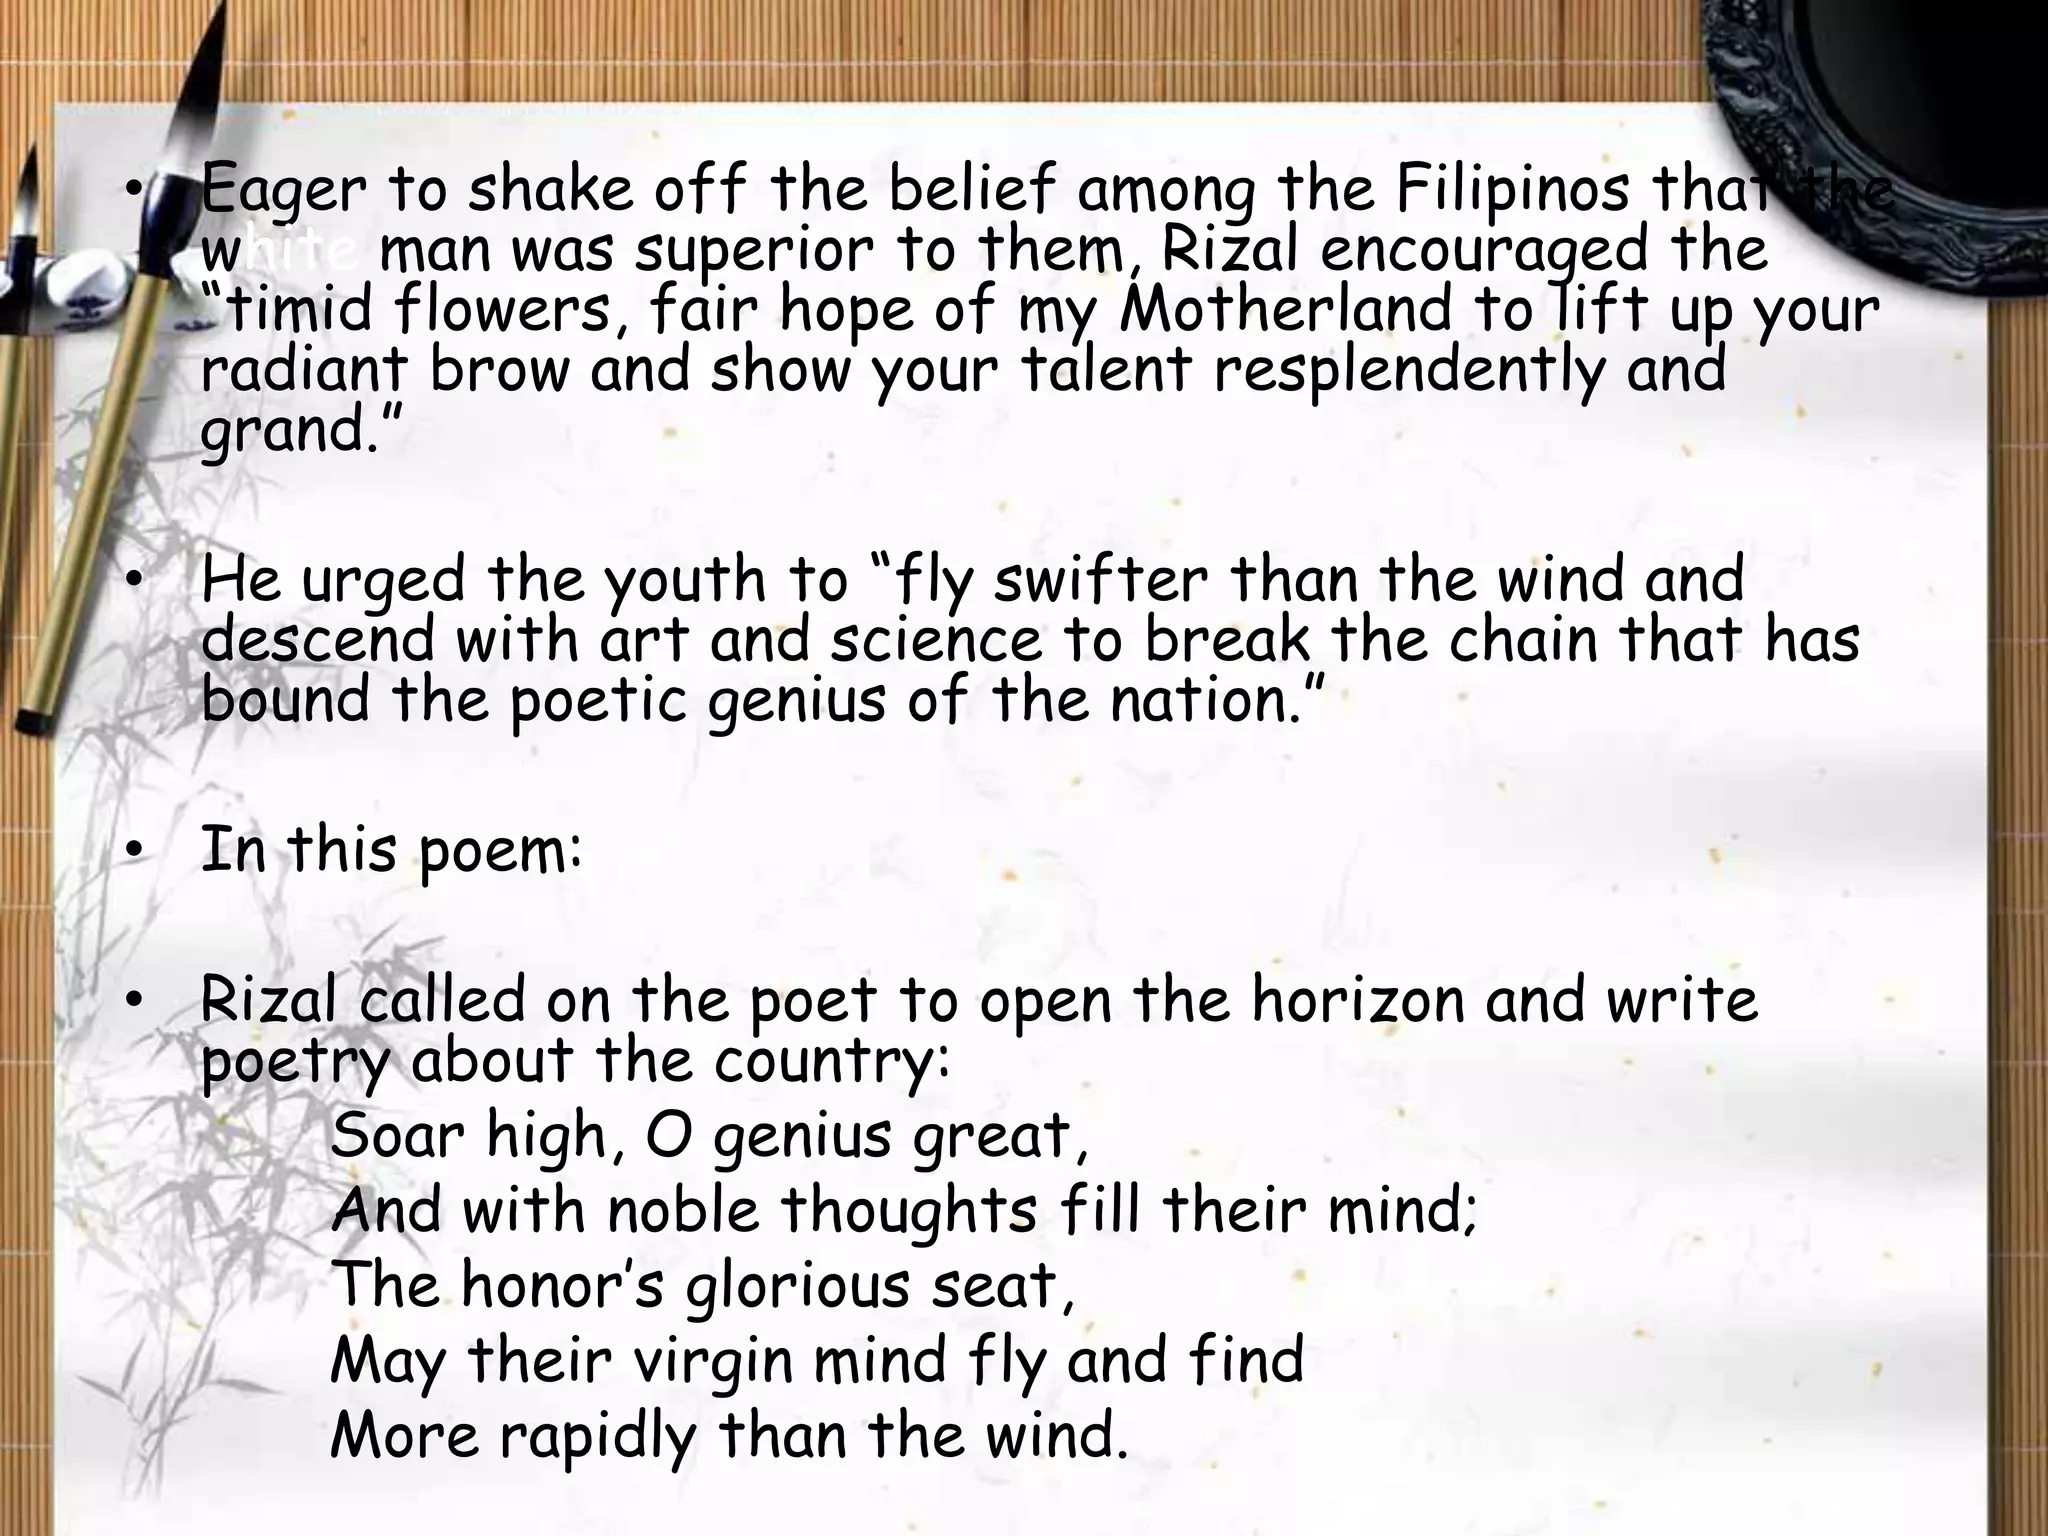 • Eager to shake off the belief among the Filipinos that the
white man was superior to them, Rizal encouraged the
“timid flowers, fair hope of my Motherland to lift up your
radiant brow and show your talent resplendently and
grand.”
• He urged the youth to “fly swifter than the wind and
descend with art and science to break the chain that has
bound the poetic genius of the nation.”
• In this poem:
• Rizal called on the poet to open the horizon and write
poetry about the country:
Soar high, O genius great,
And with noble thoughts fill their mind;
The honor’s glorious seat,
May their virgin mind fly and find
More rapidly than the wind.